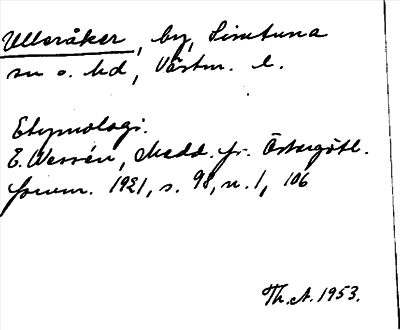 Ulleråker, by, Simtuna
sn o. hd, Västm. l.
Etymologi.
E. Wessén, Medd. fr. Östergötl.
fornm. 1921, s. 98, n. 1, 106
Th. A. 1953.